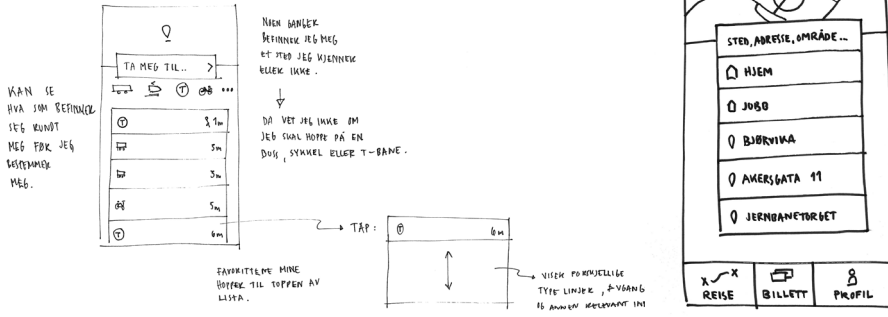 KAN SE
HVA SOM BEFINNER
SEG RUNDT
MEG FØR JEG
BESTEMMER
MEG.
TA MEG TIL.. >
T 1m
5m
3m
5m
T 6m
NOEN GANGER
BEFINNER JEG MEG
ET STED JEG KJENNER
ELLER IKKE.
DA VET JEG IKKE OM
JEG SKAL HOPPE PÅ EN
BUSS, SYKKEL ELLER T-BANE.
FAVORITTENE MINE
HOPPER TIL TOPPEN AV
LISTA.
TAP:
T 6m
VISER FORSKJELLIGE
TYPE LINJER, AVGANG
OG ANNEN RELEVANT INF
STED, ADRESSE, OMRÅDE...
HJEM
JOBB
BJØRVIKA
AKERSGATA 11
JERNBANETORGET
REISE BILLETT PROFIL